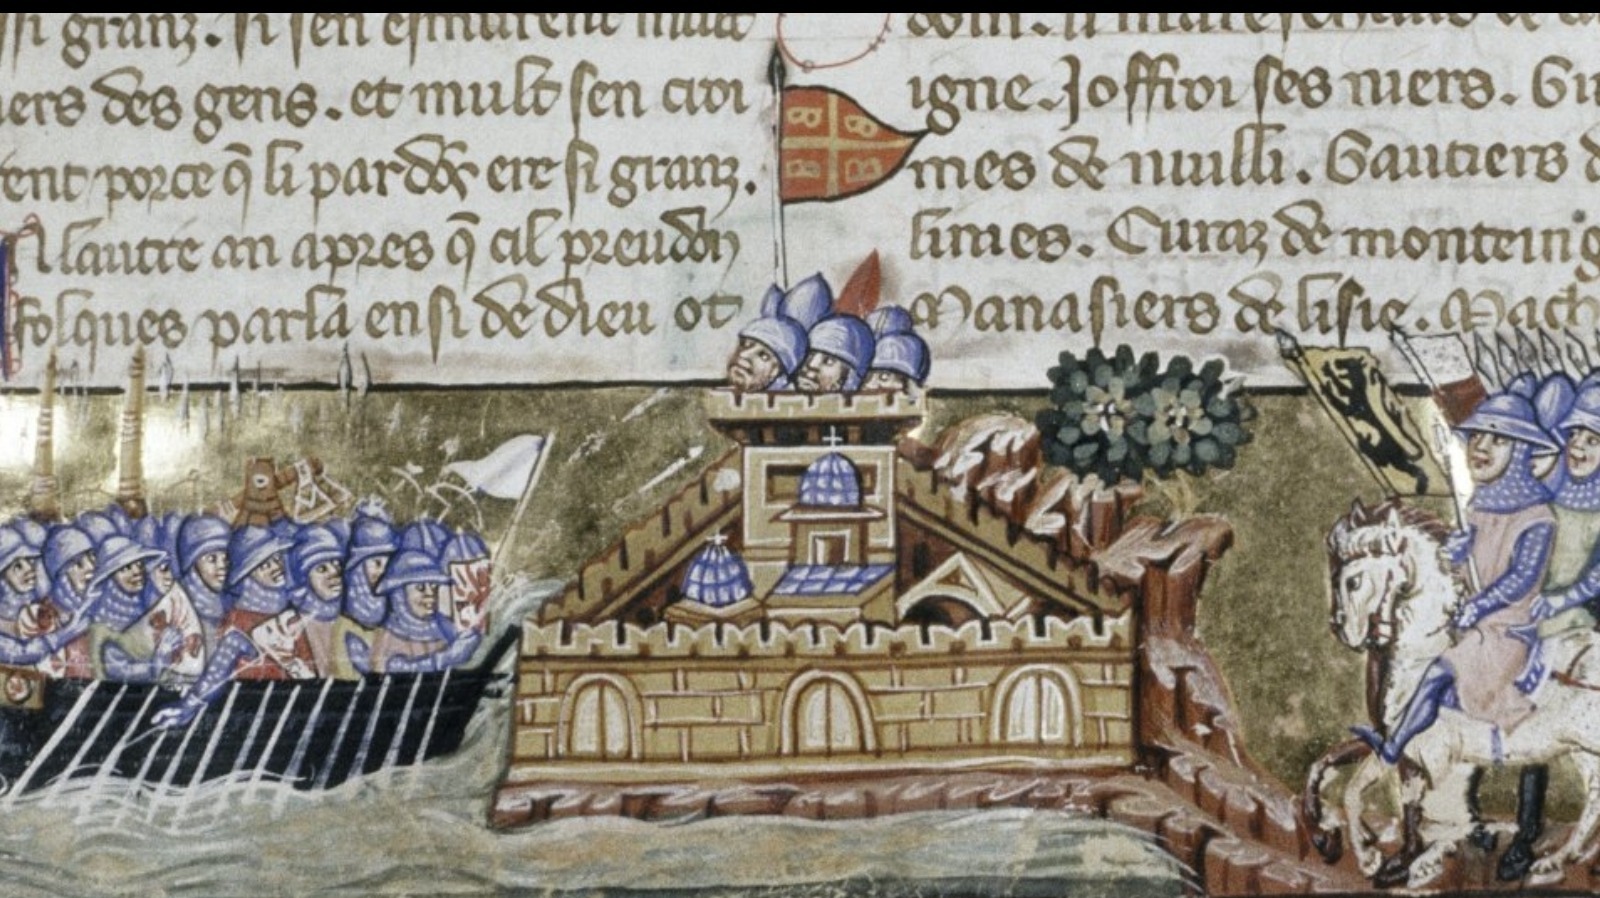 si granz. si sen esmurent mult
iers des gens. et mult sen croi
rent porce q̃ li pardõs ere si granz.
A lautre an apres q̃ cil preudon
folques parla ensi de dieu ot
dom. li mareschaus de
igne. Joffroi ses niers. Gu
mes de nuilli. Gautiers d
linies. Euraz de monteing
Manasiers de lisle. Mach
B B
B B